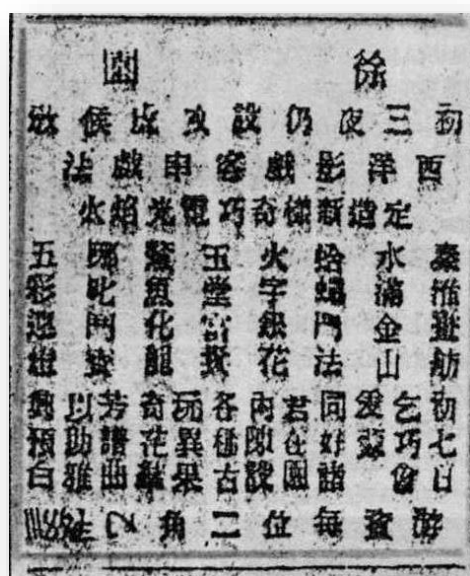 徐園
初三夜仍設文虎候教
西洋影戲客串戲法
定造新樣奇巧電光焰火
秦淮燈舫
水滿金山
鬥法
火字銀花
玉堂富貴
鰲魚化龍
哪吒鬥寶
五彩
初七日
乞巧會
同好諸
君在園
內陳設
各種古
玩異果
奇花
芳譜曲
以助雅
興預白
游資每位二角